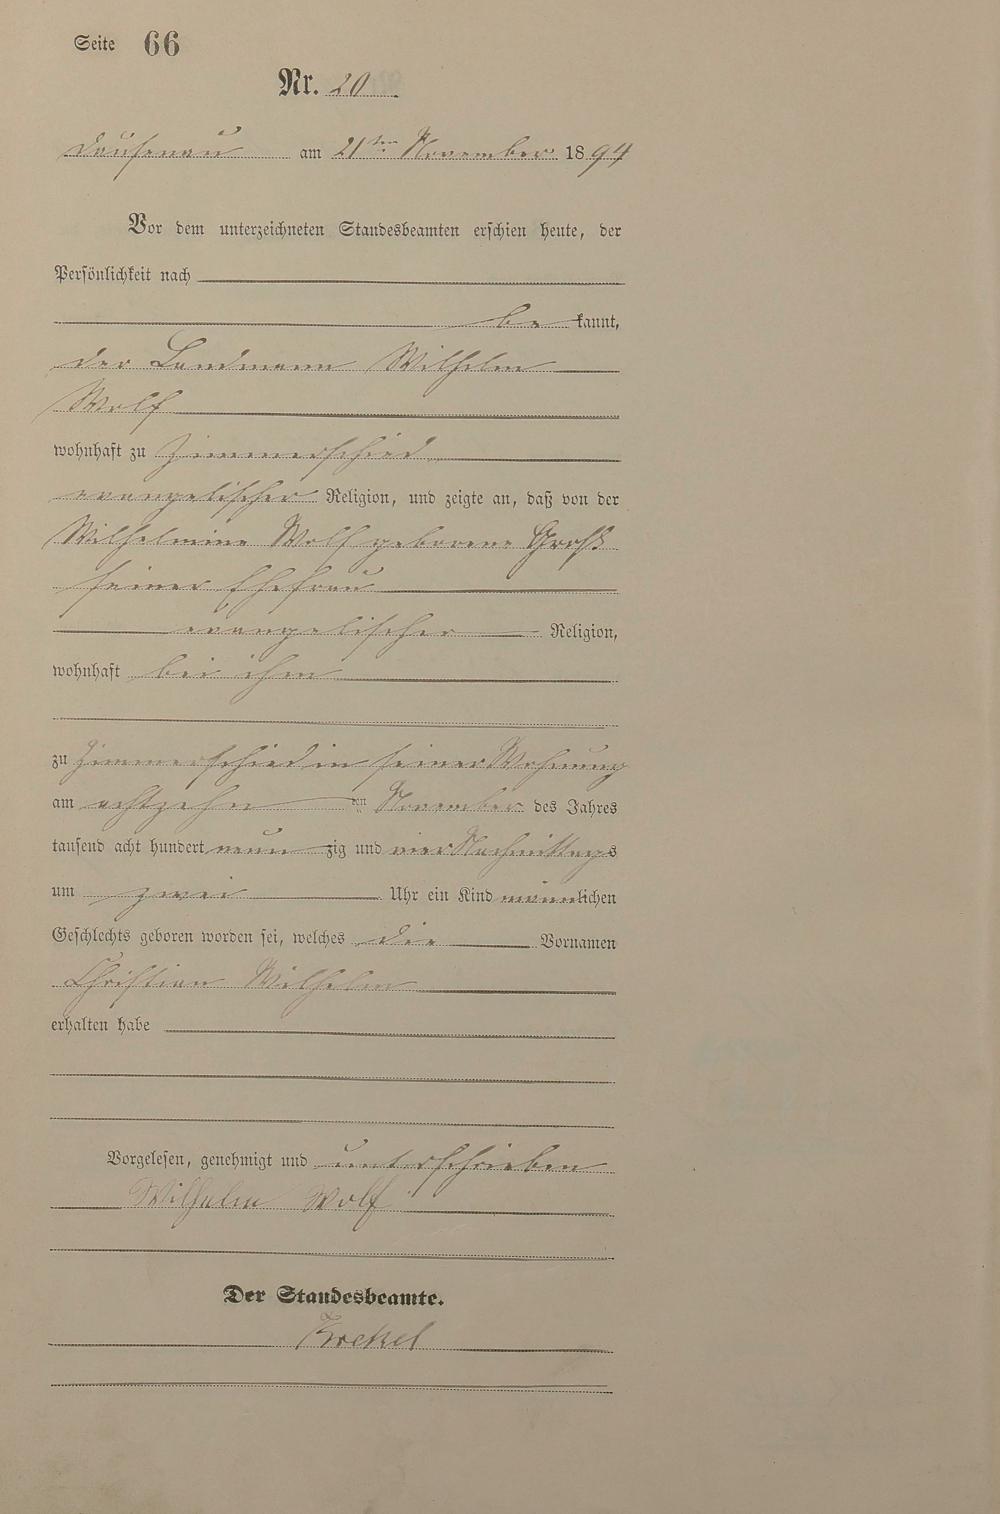 Seite 66
Nr. 20
Dausenau am 21ten November 1894
Vor dem unterzeichneten Standesbeamten erschien heute, der
Persönlichkeit nach
be kannt,
der Landmann Wilhelm
Wolf
wohnhaft zu Zimmerschied
evangelischer Religion, und zeigte an, daß von der
Wilhelmine Wolf geborene Groß
seiner Ehefrau
evangelischer Religion,
wohnhaft bei ihm
zu Zimmerschied in seiner Wohnung
am achtzehn ten November des Jahres
tausend acht hundert neun zig und vier Nachmittags
um zwei Uhr ein Kind männlichen
Geschlechts geboren worden sei, welches die Vornamen
Christian Wilhelm
erhalten habe
Vorgelesen, genehmigt und unterschrieben
Wilhelm Wolf
Der Standesbeamte.